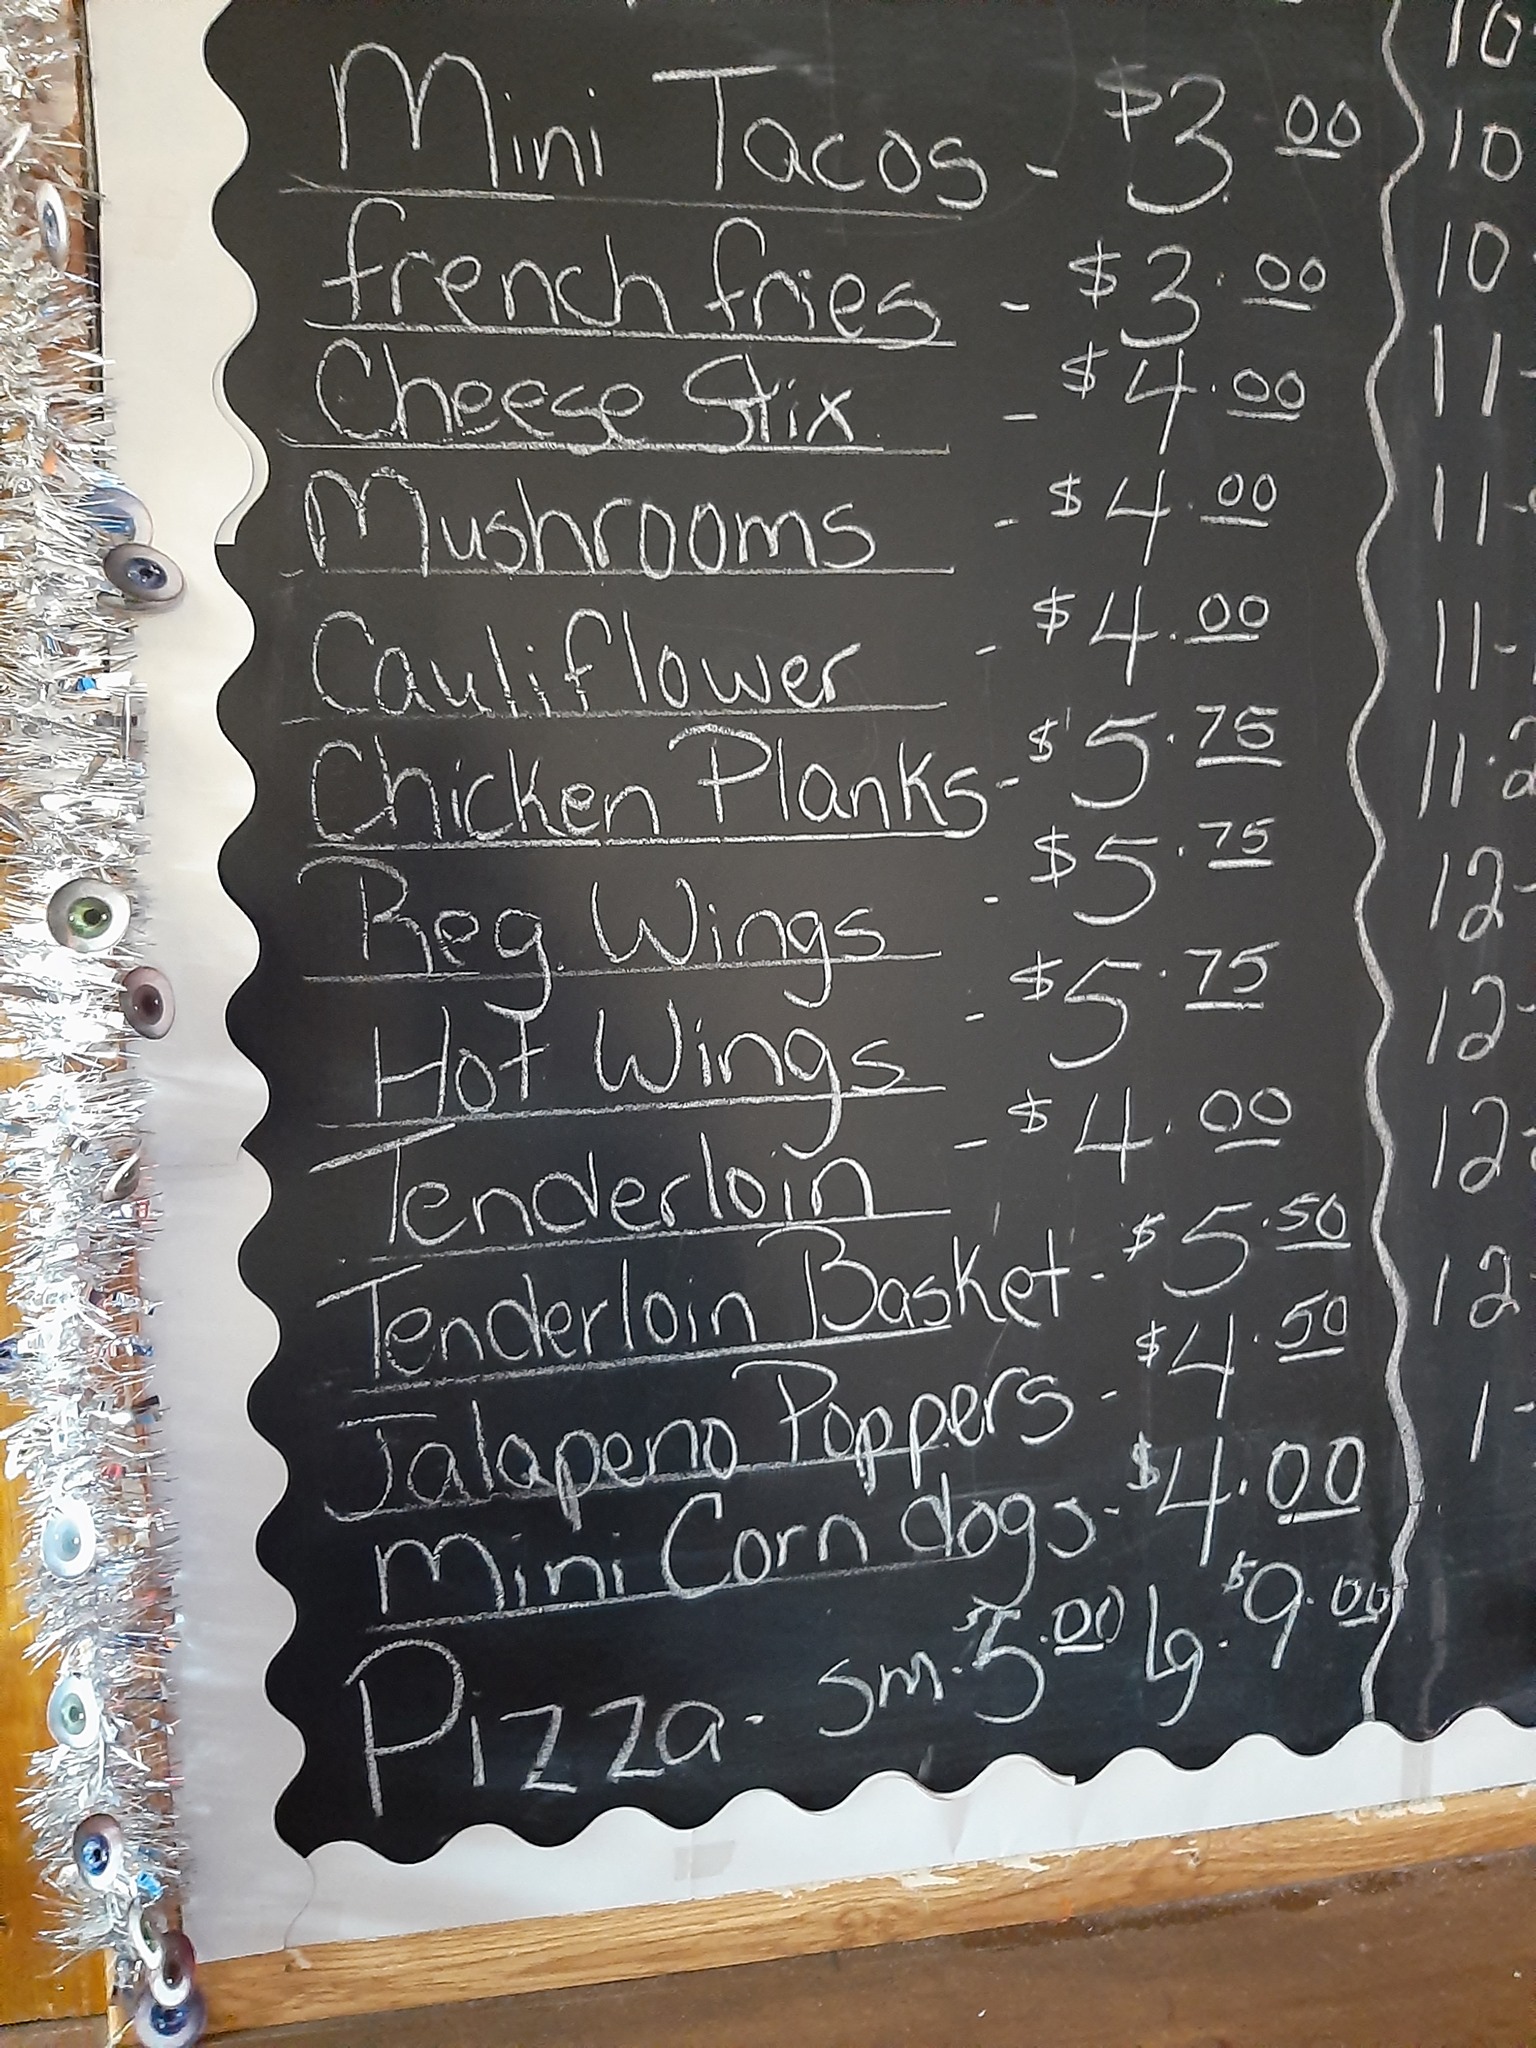 Mini Tacos - $3.00
french fries - $3.00
Cheese Stix - $4.00
Mushrooms - $4.00
Cauliflower - $4.00
Chicken Planks - $5.75
Reg. Wings - $5.75
Hot Wings - $5.75
Tenderloin - $4.00
Tenderloin Basket - $5.50
Jalapeno Poppers - $4.50
Mini Corn dogs - $4.00
Pizza - sm. 5.00 lg. $9.00
10
10
10
11-
11-
11-
11.2
12-
12-
12
12-
1-